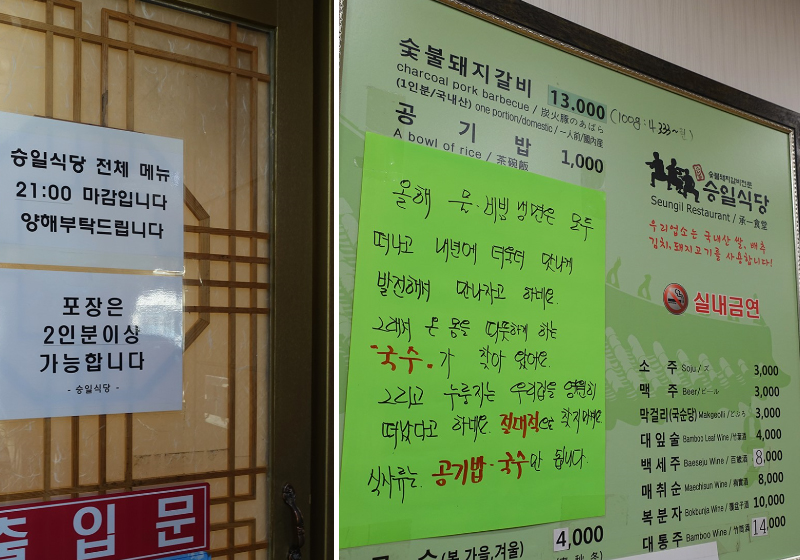 승일식당 전체 메뉴
21:00 마감입니다
양해부탁드립니다
포장은
2인분이상
가능합니다
- 승일식당 -
출입문
숯불돼지갈비 13,000 (100g : 4,333~원)
charcoal pork barbecue / 炭火豚のあばら
(1인분/국내산) one portion/domestic / 一人前/國內産
공기밥 1,000
A bowl of rice / 茶碗飯
올해 물·비빔냉면은 모두
떠나고 내년에 더욱더 맛나게
발전해서 만나자고 하네요.
그래서 온 몸을 따뜻하게 하는
"국수"가 찾아 왔어요.
그리고 누룽지는 우리집을 영원히
떠났다고 하네요. 절대적으로 찾지마세요
식사류는 공기밥·국수만 됩니다.
4,000
(봄,가을,겨울)
숯불돼지갈비전문
승일식당
Seungil Restaurant / 承一食堂
우리업소는 국내산 쌀, 배추
김치,돼지고기를 사용합니다!
실내금연
소주 Soju / ズ 3,000
맥주 Beer / ビール 3,000
막걸리(국순당) Makgeolli / どぶろ 3,000
대잎술 Bamboo Leaf Wine / 竹葉酒 4,000
백세주 Baeseju Wine / 百歲酒 8,000
매취순 Maechisun Wine / 梅實酒 8,000
복분자 Bokbunja Wine / 覆盆子酒 10,000
대통주 Bamboo Wine / 竹筒酒 14,000